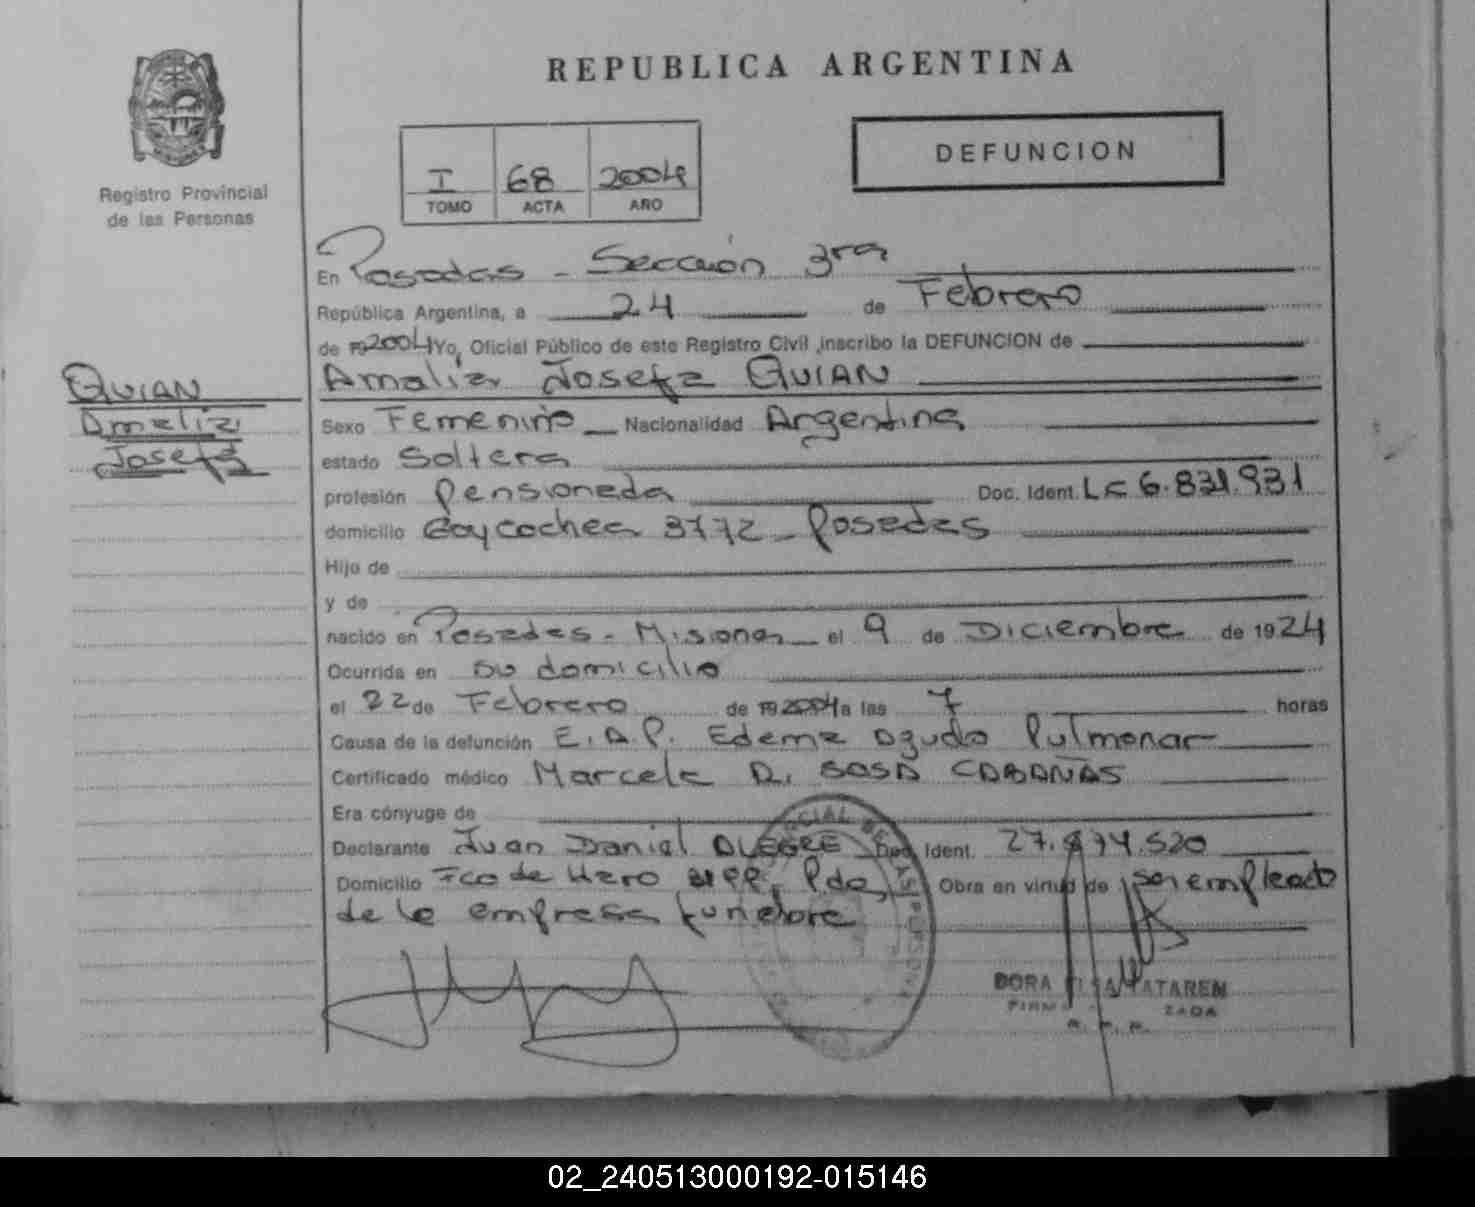 REPUBLICA ARGENTINA
DEFUNCION
I 68 2004
TOMO ACTA AÑO
Registro Provincial
de las Personas
En Posadas - Sección 3ra
República Argentina, a 24 de Febrero
de 19 2004 Yo, Oficial Público de este Registro Civil, inscribo la DEFUNCION de
Amalia Josefa QUIAN
QUIAN
Amalia
Josefa
Sexo Femenino Nacionalidad Argentina
estado Soltera
profesión Pensionada Doc. Ident. LC 6.831.931
domicilio Goycochea 3772 - Posadas
Hijo de
y de
nacido en Posadas - Misiones el 9 de Diciembre de 1924
Ocurrida en su domicilio
el 22 de Febrero de 19 2004 a las 7 horas
Causa de la defunción E.A.P. Edema Agudo Pulmonar
Certificado médico Marcela R. SOSA CABAÑAS
Era cónyuge de
Declarante Juan Daniel ALEGRE Doc. Ident. 27.874.520
Domicilio Fco de Haro Pdas, Obra en virtud de ser empleado
de la empresa funebre
DORA ELSA MATAREN
FIRMA ZADA
R. P. P.
02_240513000192-015146